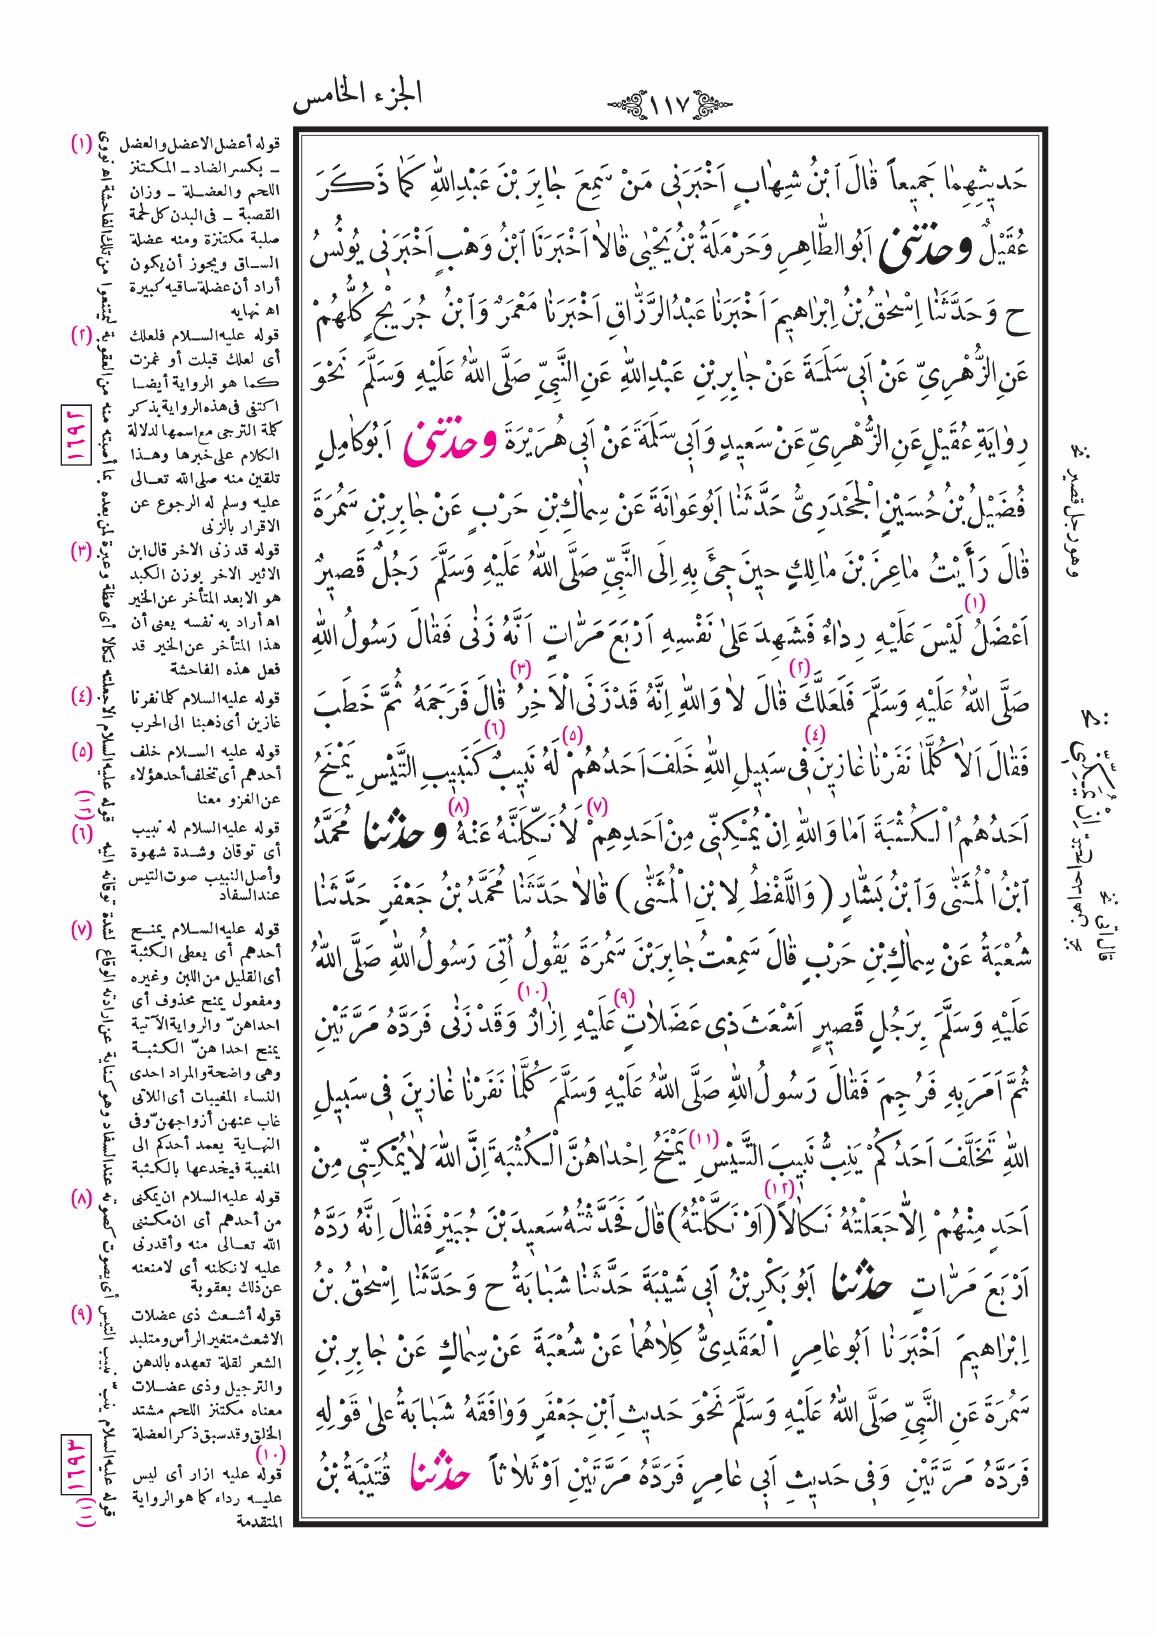 الجزء الخامس
١١٧
حَديثِهِمٰا جَميعاً قٰالَ ٱبْنُ شِهٰابٍ اَخْبَرَنى مَنْ سَمِعَ جٰابِرَ بْنَ عَبْدِاللّٰهِ كَمٰا ذَكَرَ
عُقَيْلٌ وحدثنى اَبُوالطّٰاهِرِ وَحَرْمَلَةُ بْنُ يَحْيٰى قٰالاٰ اَخْبَرَنَا ٱبْنُ وَهْبٍ اَخْبَرَنى يُونُسُ
ح وَحَدَّثَنٰا اِسْحٰقُ بْنُ اِبْرٰاهيمَ اَخْبَرَنٰا عَبْدُالرَّزّٰاقِ اَخْبَرَنٰا مَعْمَرٌ وَٱبْنُ جُرَيْجٍ كُلُّهُمْ
عَنِ الزُّهْرِىِّ عَنْ اَبى سَلَمَةَ عَنْ جٰابِرِ بْنِ عَبْدِاللّٰهِ عَنِ النَّبِىِّ صَلَّى اللّٰهُ عَلَيْهِ وَسَلَّمَ نَحْوَ
رِوٰايَةِ عُقَيْلٍ عَنِ الزُّهْرِىِّ عَنْ سَعيدٍ وَاَبى سَلَمَةَ عَنْ اَبى هُرَيْرَةَ وحدثنى اَبُوكٰامِلٍ
فُضَيْلُ بْنُ حُسَيْنٍ الْجَحْدَرِىُّ حَدَّثَنٰا اَبُوعَوٰانَةَ عَنْ سِمٰاكِ بْنِ حَرْبٍ عَنْ جٰابِرِ بْنِ سَمُرَةَ
قٰالَ رَأَيْتُ مٰاعِزَ بْنَ مٰالِكٍ حينَ جئَ بِهِ اِلَى النَّبِىِّ صَلَّى اللّٰهُ عَلَيْهِ وَسَلَّمَ رَجُلٌ قَصيرٌ
اَعْضَلُ (١) لَيْسَ عَلَيْهِ رِدٰاءٌ فَشَهِدَ عَلىٰ نَفْسِهِ اَرْبَعَ مَرّٰاتٍ اَنَّهُ زَنٰى فَقٰالَ رَسُولُ اللّٰهِ
صَلَّى اللّٰهُ عَلَيْهِ وَسَلَّمَ فَلَعَلَّكَ (٢) قٰالَ لاٰ وَاللّٰهِ اِنَّهُ قَدْ زَنَى الْاَخِرُ (٣) قٰالَ فَرَجَمَهُ ثُمَّ خَطَبَ
فَقٰالَ اَلاٰ كُلَّمٰا نَفَرْنٰا غٰازينَ (٤) فى سَبيلِ اللّٰهِ خَلَفَ اَحَدُهُمْ (٥) لَهُ نَبيبٌ (٦) كَنَبيبِ التَّيْسِ يَمْنَحُ
اَحَدُهُمُ الْكُثْبَةَ (٧) اَمٰا وَاللّٰهِ اِنْ يُمْكِنّى مِنْ اَحَدِهِمْ لَاُنَكِّلَنَّهُ عَنْهُ (٨) وحدثنا مُحَمَّدُ
ٱبْنُ الْمُثَنّٰى وَٱبْنُ بَشّٰارٍ ( وَاللَّفْظُ لِابْنِ الْمُثَنّٰى ) قٰالاٰ حَدَّثَنٰا مُحَمَّدُ بْنُ جَعْفَرٍ حَدَّثَنٰا
شُعْبَةُ عَنْ سِمٰاكِ بْنِ حَرْبٍ قٰالَ سَمِعْتُ جٰابِرَ بْنَ سَمُرَةَ يَقُولُ اُتِىَ رَسُولُ اللّٰهِ صَلَّى اللّٰهُ
عَلَيْهِ وَسَلَّمَ بِرَجُلٍ قَصيرٍ اَشْعَثَ ذى عَضَلاٰتٍ (٩) عَلَيْهِ اِزٰارٌ (١٠) وَقَدْ زَنٰى فَرَدَّهُ مَرَّتَيْنِ
ثُمَّ اَمَرَ بِهِ فَرُجِمَ فَقٰالَ رَسُولُ اللّٰهِ صَلَّى اللّٰهُ عَلَيْهِ وَسَلَّمَ كُلَّمٰا نَفَرْنٰا غٰازينَ فى سَبيلِ
اللّٰهِ تَخَلَّفَ اَحَدُكُمْ يَنِبُّ نَبيبَ التَّيْسِ (١١) يَمْنَحُ اِحْدٰاهُنَّ الْكُثْبَةَ اِنَّ اللّٰهَ لاٰ يُمْكِنّى مِنْ
اَحَدٍ مِنْهُمْ اِلاّٰ جَعَلْتُهُ نَكٰالاً (١٢) (اَوْ نَكَّلْتُهُ) قٰالَ فَحَدَّثْتُهُ سَعيدَ بْنَ جُبَيْرٍ فَقٰالَ اِنَّهُ رَدَّهُ
اَرْبَعَ مَرّٰاتٍ حدثنا اَبُو بَكْرِ بْنُ اَبى شَيْبَةَ حَدَّثَنٰا شَبٰابَةُ ح وَحَدَّثَنٰا اِسْحٰقُ بْنُ
اِبْرٰاهيمَ اَخْبَرَنٰا اَبُو عٰامِرٍ الْعَقَدِىُّ كِلاٰهُمٰا عَنْ شُعْبَةَ عَنْ سِمٰاكٍ عَنْ جٰابِرِ بْنِ
سَمُرَةَ عَنِ النَّبِىِّ صَلَّى اللّٰهُ عَلَيْهِ وَسَلَّمَ نَحْوَ حَديثِ ٱبْنِ جَعْفَرٍ وَوٰافَقَهُ شَبٰابَةُ عَلىٰ قَوْلِهِ
فَرَدَّهُ مَرَّتَيْنِ وَفى حَديثِ اَبى عٰامِرٍ فَرَدَّهُ مَرَّتَيْنِ اَوْ ثَلاٰثاً حدثنا قُتَيْبَةُ بْنُ
وهو رجل قصير نخ
ان يمكننى
قال اتى نخ
(١) قوله أعضل الاعضل والعضل
ـ بكسر الضاد ـ المكتنز
اللحم والعضلة ـ وزان
القصبة ـ فى البدن كل لحمة
صلبة مكتنزة ومنه عضلة
الساق ويجوز أن يكون
أراد أن عضلة ساقيه كبيرة
اه نهايه
(٢) قوله عليه السلام فلعلك
أى لعلك قبلت أو غمزت
كما هو الرواية أيضا
اكتفى فى هذه الرواية بذكر
كلمة الترجى مع اسمها لدلالة
الكلام على خبرها وهذا
تلقين منه صلى الله تعالى
عليه وسلم له الرجوع عن
الاقرار بالزنى
(٣) قوله قد زنى الاخر قال ابن
الاثير الاخر بوزن الكبد
هو الابعد المتأخر عن الخير
اه أراد به نفسه يعنى أن
هذا المتأخر عن الخير قد
فعل هذه الفاحشة
(٤) قوله عليه السلام كلما نفرنا
غازين أى ذهبنا الى الحرب
(٥) قوله عليه السلام خلف
أحدهم أى تخلف أحد هؤلاء
عن الغزو معنا
(٦) قوله عليه السلام له نبيب
أى توقان وشدة شهوة
وأصل النبيب صوت التيس
عند السفاد
(٧) قوله عليه السلام يمنح
أحدهم أى يعطى الكثبة
أى القليل من اللبن وغيره
ومفعول يمنح محذوف أى
احداهنّ والرواية الآتية
يمنح احداهنّ الكثبة
وهى واضحة والمراد احدى
النساء المغيبات أى اللاتى
غاب عنهن أزواجهنّ وفى
النهاية يعمد أحدكم الى
المغيبة فيخدعها بالكثبة
(٨) قوله عليه السلام ان يمكنى
من أحدهم أى ان مكننى
الله تعالى منه وأقدرنى
عليه لانكلنه أى لامنعنه
عن ذلك بعقوبة
(٩) قوله أشعث ذى عضلات
الاشعث متغير الرأس ومتلبد
الشعر لقلة تعهده بالدهن
والترجيل وذى عضلات
معناه مكتنز اللحم مشتد
الخلق وقد سبق ذكر العضلة
(١٠)
قوله عليه ازار أى ليس
عليه رداء كما هو الرواية
المتقدمة
(١١) قوله عليه السلام ينبّ نبيب التيس أى يصوت كصوته عند السفاد وهو كناية عن ارادته الوقاع لشدة توقانه اليه
(١٢) قوله عليه السلام الا جعلته نكالا أى عظة وعبرة لمن بعده بما أصبته منه من العقوبة ليمتنعوا من تلك الفاحشة اه نووى
١٦٩٢
١٦٩٣